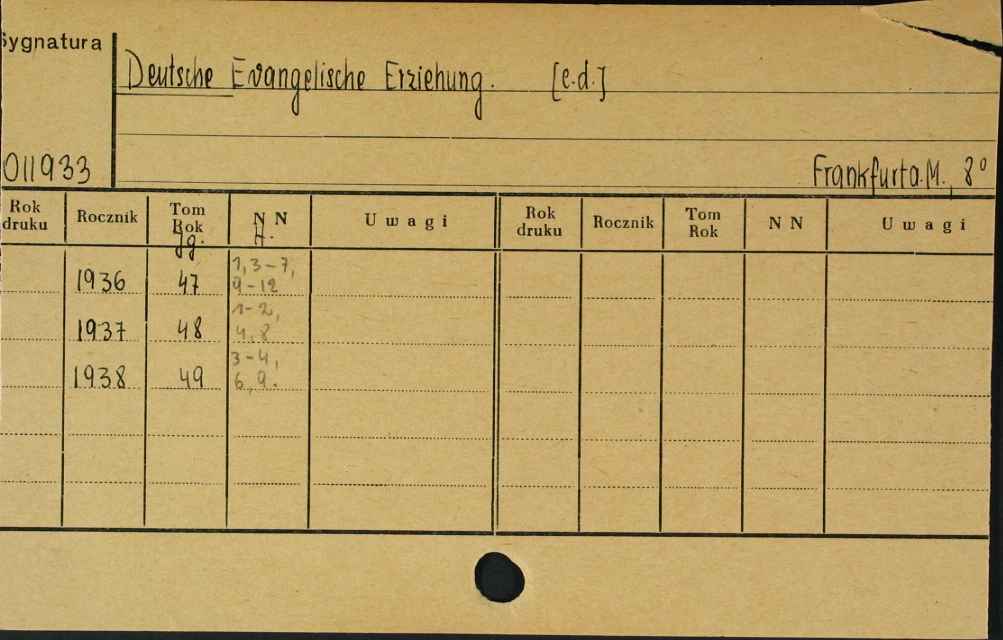 Sygnatura
Deutsche Evangelische Erziehung. [e.d.]
011933
Frankfurt a.M., 8°
Rok druku Rocznik Tom Rok Jg. N N H. Uwagi Rok druku Rocznik Tom Rok N N Uwagi
1936 47 1, 3-7, 9-12
1937 48 1-2, 4, 8
1938 49 3-4, 6, 9.